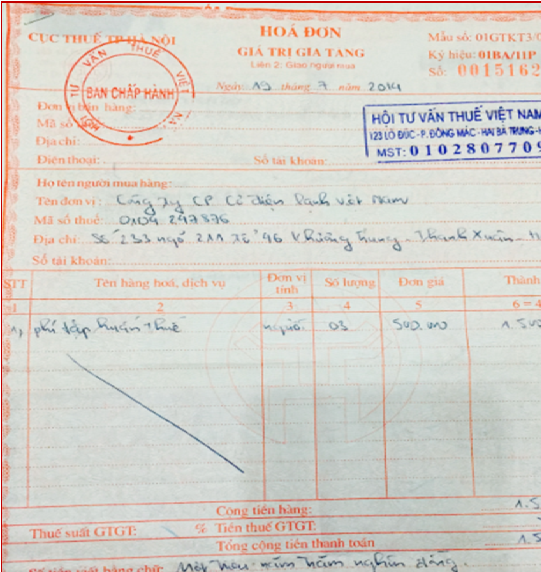 CỤC THUẾ TP HÀ NỘI
HOÁ ĐƠN
GIÁ TRỊ GIA TĂNG
Liên 2: Giao người mua
Ngày 19 tháng 7 năm 2014
Mẫu số: 01GTKT3/0
Ký hiệu: 01BA/11P
Số: 0015162
HỘI TƯ VẤN THUẾ VIỆT NA
BAN CHẤP HÀNH
Đơn vị bán hàng:
Mã số
Địa chỉ:
Điện thoại:
Số tài khoản:
HỘI TƯ VẤN THUẾ VIỆT NAM
123 LÒ ĐÚC - P. ĐỐNG MÁC - HAI BÀ TRƯNG - H
MST: 010280770
Họ tên người mua hàng:
Tên đơn vị: Công ty CP Cơ điện lạnh việt Nam
Mã số thuế: 0104 297876
Địa chỉ: Số 233 ngõ 211 Tổ 96 Khương Trung - Thanh Xuân - H
Số tài khoản:
STT Tên hàng hoá, dịch vụ Đơn vị tính Số lượng Đơn giá Thành
1 2 3 4 5 6 = 4
1, phí tập huấn thuế người 03 500.000 1.500
Cộng tiền hàng: 1.5
Thuế suất GTGT: % Tiền thuế GTGT:
Tổng cộng tiền thanh toán 1.5
Số tiền viết bằng chữ: Một triệu năm trăm nghìn đồng.